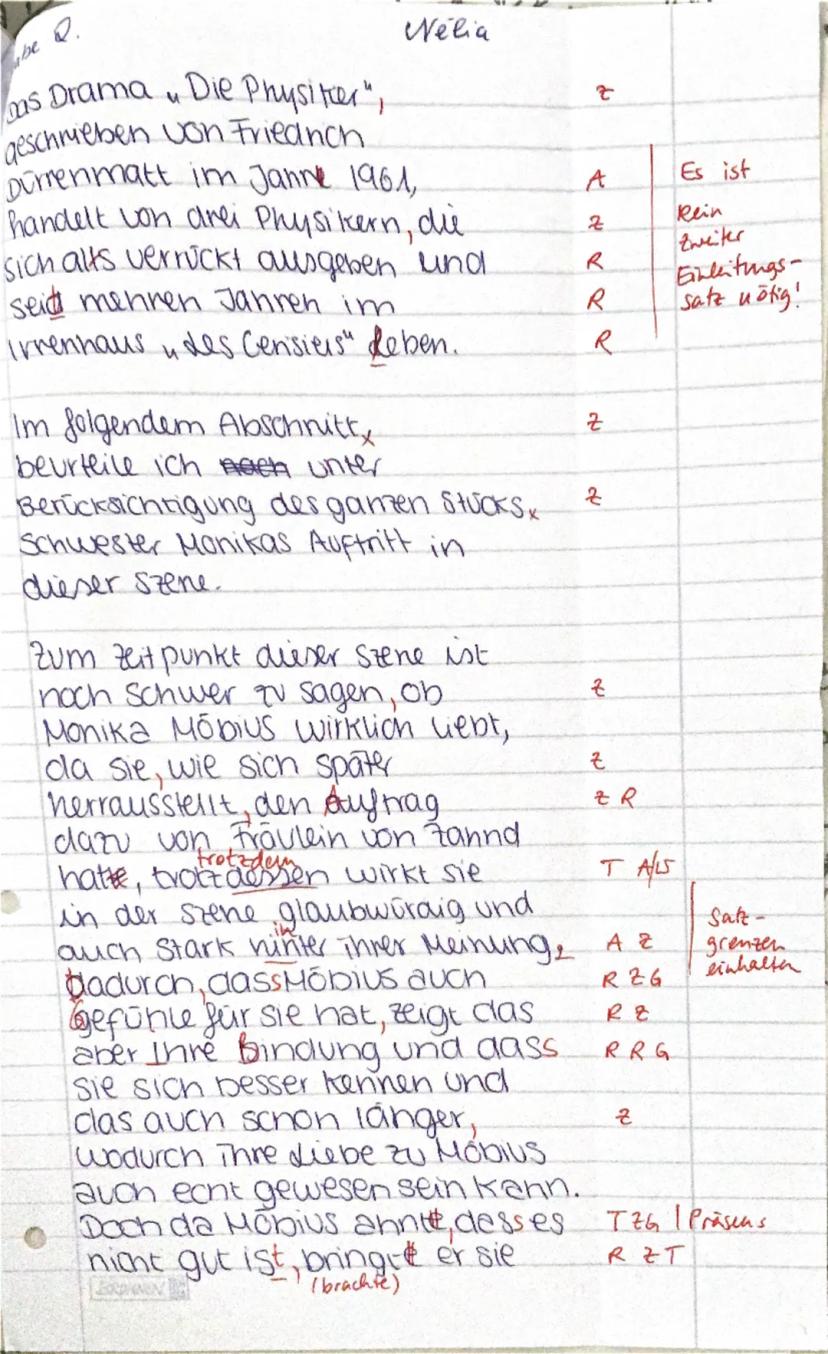 be 2.
Nélia
Das Drama „Die Physiker", Z
geschrieben von Friedrich
Dürrenmatt im Jahre 1961, A Es ist
handelt von drei Physikern, die Z kein
sich als verrückt ausgeben und R zweiter
seid mehren Jahren im R Einleitungs-
Irrenhaus „des Cerisiers" Leben. R satz nötig!
Im folgendem Abschnitt, Z
beurteile ich noch unter
Berücksichtigung des ganzen Stücks, Z
Schwester Monikas Auftritt in
dieser Szene.
Zum Zeitpunkt dieser Szene ist
noch schwer zu sagen, ob Z
Monika Möbius wirklich liebt,
da sie, wie sich später Z
herrausstellt, den Auftrag Z R
dazu von Fräulein von Zahnd
trotzdem
hatte, trotzdessen wirkt sie T A/LS
in der Szene glaubwürdig und Satz-
in
auch stark hinter ihrer Meinung, A Z grenzen
dadurch, dass Möbius auch R Z G einhalten
Gefühle für sie hat, zeigt das R Z
aber Ihre Bindung und dass R R G
sie sich besser kennen und
das auch schon länger, Z
wodurch ihre Liebe zu Möbius
auch echt gewesen sein kann.
Doch da Möbius ahnt, dass es T Z G | Präsens
nicht gut ist, bringt er sie R Z T
(brachte)
BRUNNEN